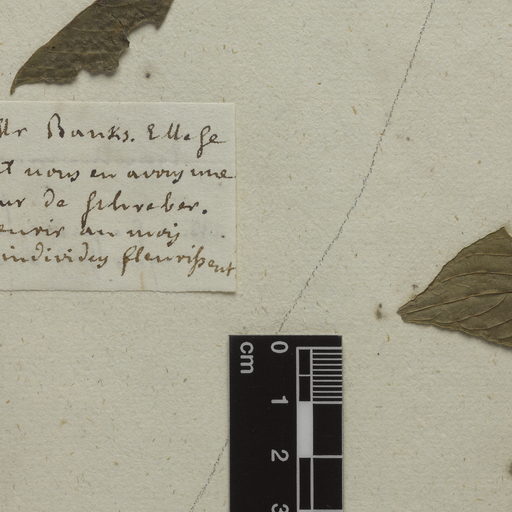 Mr Banks. Elle se
et nous en avons une
ur de Schreber.
eurir au mois
individus fleurissent
cm
0
1
2
3